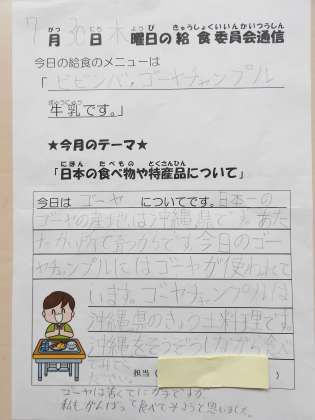 7月30日 木曜日の給食委員会通信
今日の給食のメニューは
「ビビンバ、ゴーヤチャンプル
牛乳です。」
★今月のテーマ★
「日本の食べ物や特産品について」
今日は ゴーヤ についてです。日本一の
ゴーヤの産地は沖縄県です。あた
たかい所で育つからです。今日のゴー
ヤチャンプルにはゴーヤが使われて
います。ゴーヤチャンプルは
沖縄県のきょう土料理です。
沖縄をそうぞうしながら食べ
担当（
ゴーヤは苦くてにが手ですが、
私もがんばって食べてみようと思いました。